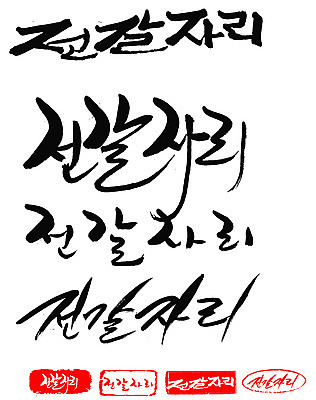 전갈자리
전갈자리
전갈자리
전갈자리
전갈자리 전갈자리 전갈자리 전갈자리